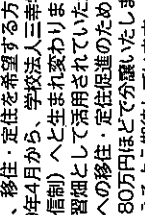 、移住・定住を希望する方
年4月から、学校法人三幸
信制)へと生まれ変わりま
習畑として活用されていた
への移住・定住促進のため
80万円ほどで分譲いたしま